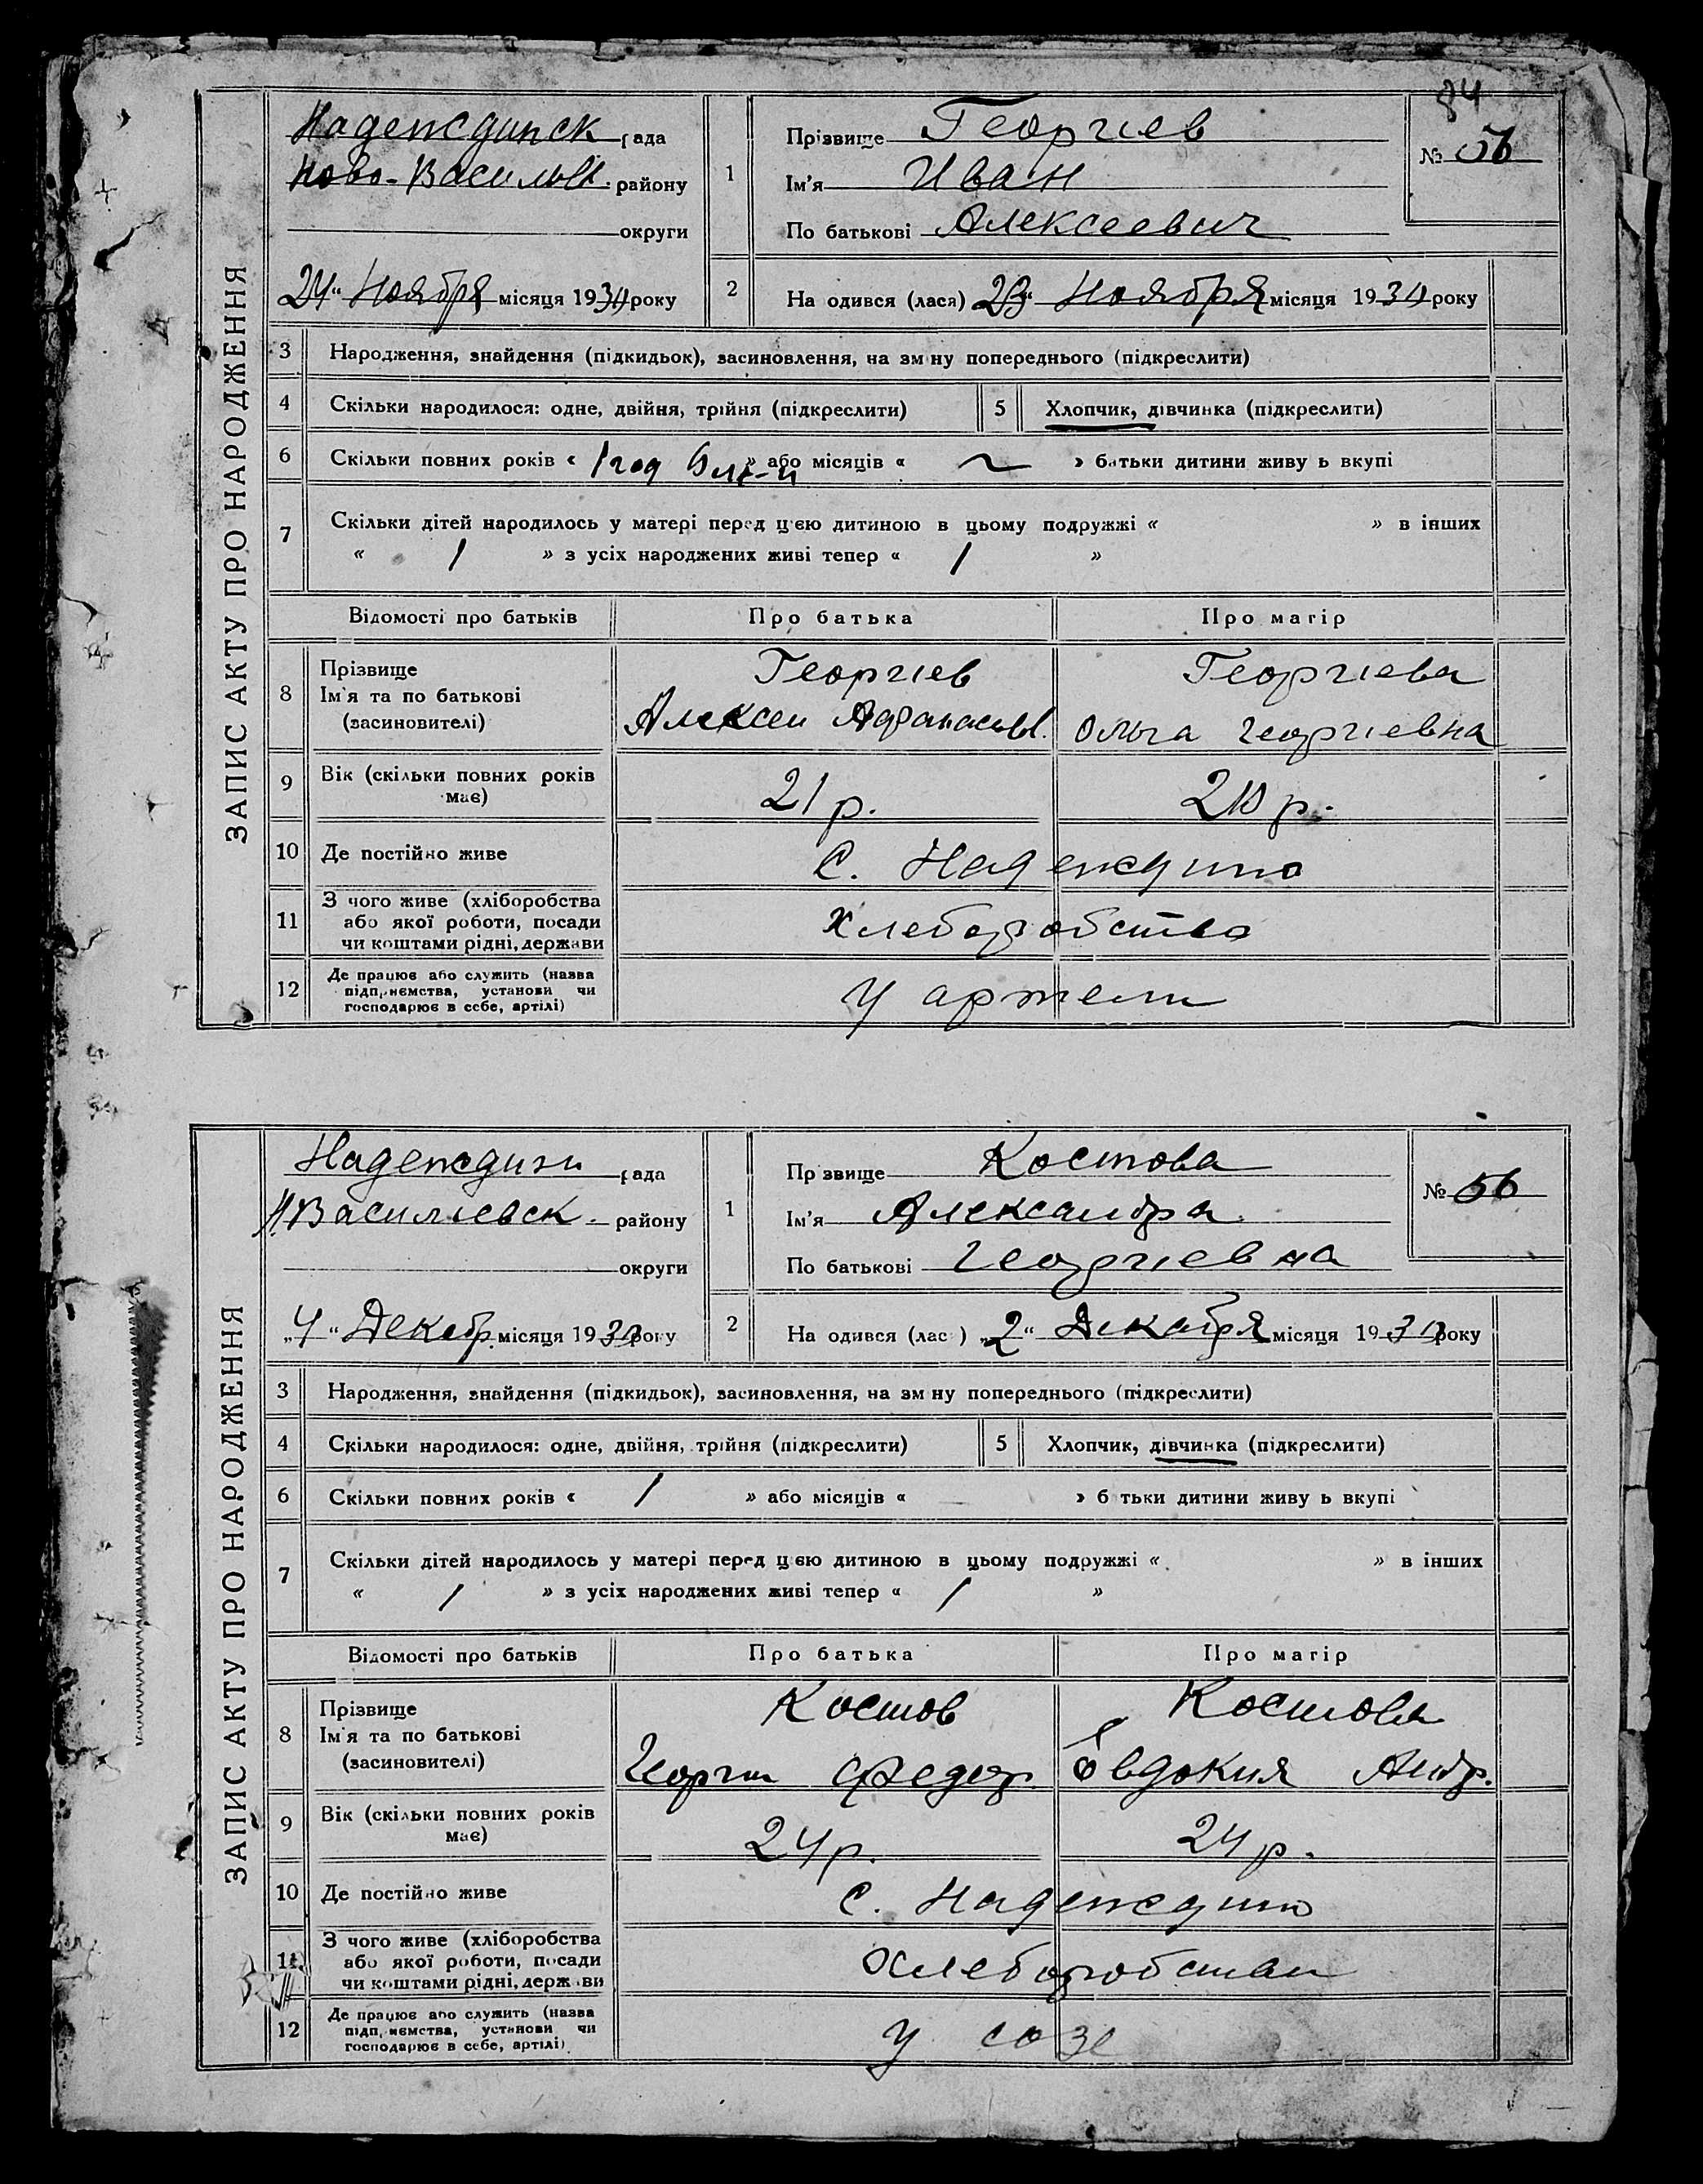 84
ЗАПИС АКТУ ПРО НАРОДЖЕННЯ
Надеждинск рада
Ново-Васильев. району
округи
24 " Ноября місяця 1930 року
1
Прізвище Георгиев
Ім'я Иван
По батькові Алексеевич
№
2
На одився (лася) 23 " Ноября місяця 1930 року
3 Народження, знайдення (підкидьок), засиновлення, на зм ну попереднього (підкреслити)
4 Скільки народилося: одне, двійня, трійня (підкреслити) 5 Хлопчик, дівчинка (підкреслити)
6 Скільки повних років « 1 год » або місяців « ~ » батьки дитини живу ь вкупі
7 Скільки дітей народилось у матері перед цією дитиною в цьому подружжі « » в інших
« 1 » з усіх народжених живі тепер « 1 »
Відомості про батьків Про батька Про матір
8 Прізвище
Ім'я та по батькові
(засиновителі)
Георгиев
Алексеи Афанасьев.
Георгиева
Ольга Георгиевна
9 Вік (скільки повних років
має)
21 р.
р.
10 Де постійно живе С. Надеждино
11 З чого живе (хліборобства
або якої роботи, посади
чи коштами рідні, держави
Хлеборобство
12 Де працює або служить (назва
підприємства, установи чи
господарює в себе, артілі)
У артели
ЗАПИС АКТУ ПРО НАРОДЖЕННЯ
Надеждин рада
Н.Васильевск. району
округи
„4 " Декабр. місяця 1930 року
1
Пр звище Костова
Ім'я Александра
По батькові Георгиевна
№ 56
2
На одився (лас ) „2 " Декабря місяця 1930 року
3 Народження, знайдення (підкидьок), засиновлення, на зм ну попереднього (підкреслити)
4 Скільки народилося: одне, двійня, трійня (підкреслити) 5 Хлопчик, дівчинка (підкреслити)
6 Скільки повних років « 1 » або місяців « » б тьки дитини живу ь вкупі
7 Скільки дітей народилось у матері перед цією дитиною в цьому подружжі « » в інших
« 1 » з усіх народжених живі тепер « 1 »
Відомості про батьків Про батька Про матір
8 Прізвище
Ім'я та по батькові
(засиновителі)
Костов
Георги Федор.
Костова
Евдокия Андр.
9 Вік (скільки повних років
має)
24 р.
24 р.
10 Де постійно живе С. Надеждино
11 З чого живе (хліборобства
або якої роботи, посади
чи коштами рідні, держави
Хлеборобства
12 Де працює або служить (назва
підприємства, установи чи
господарює в себе, артілі)
У созе